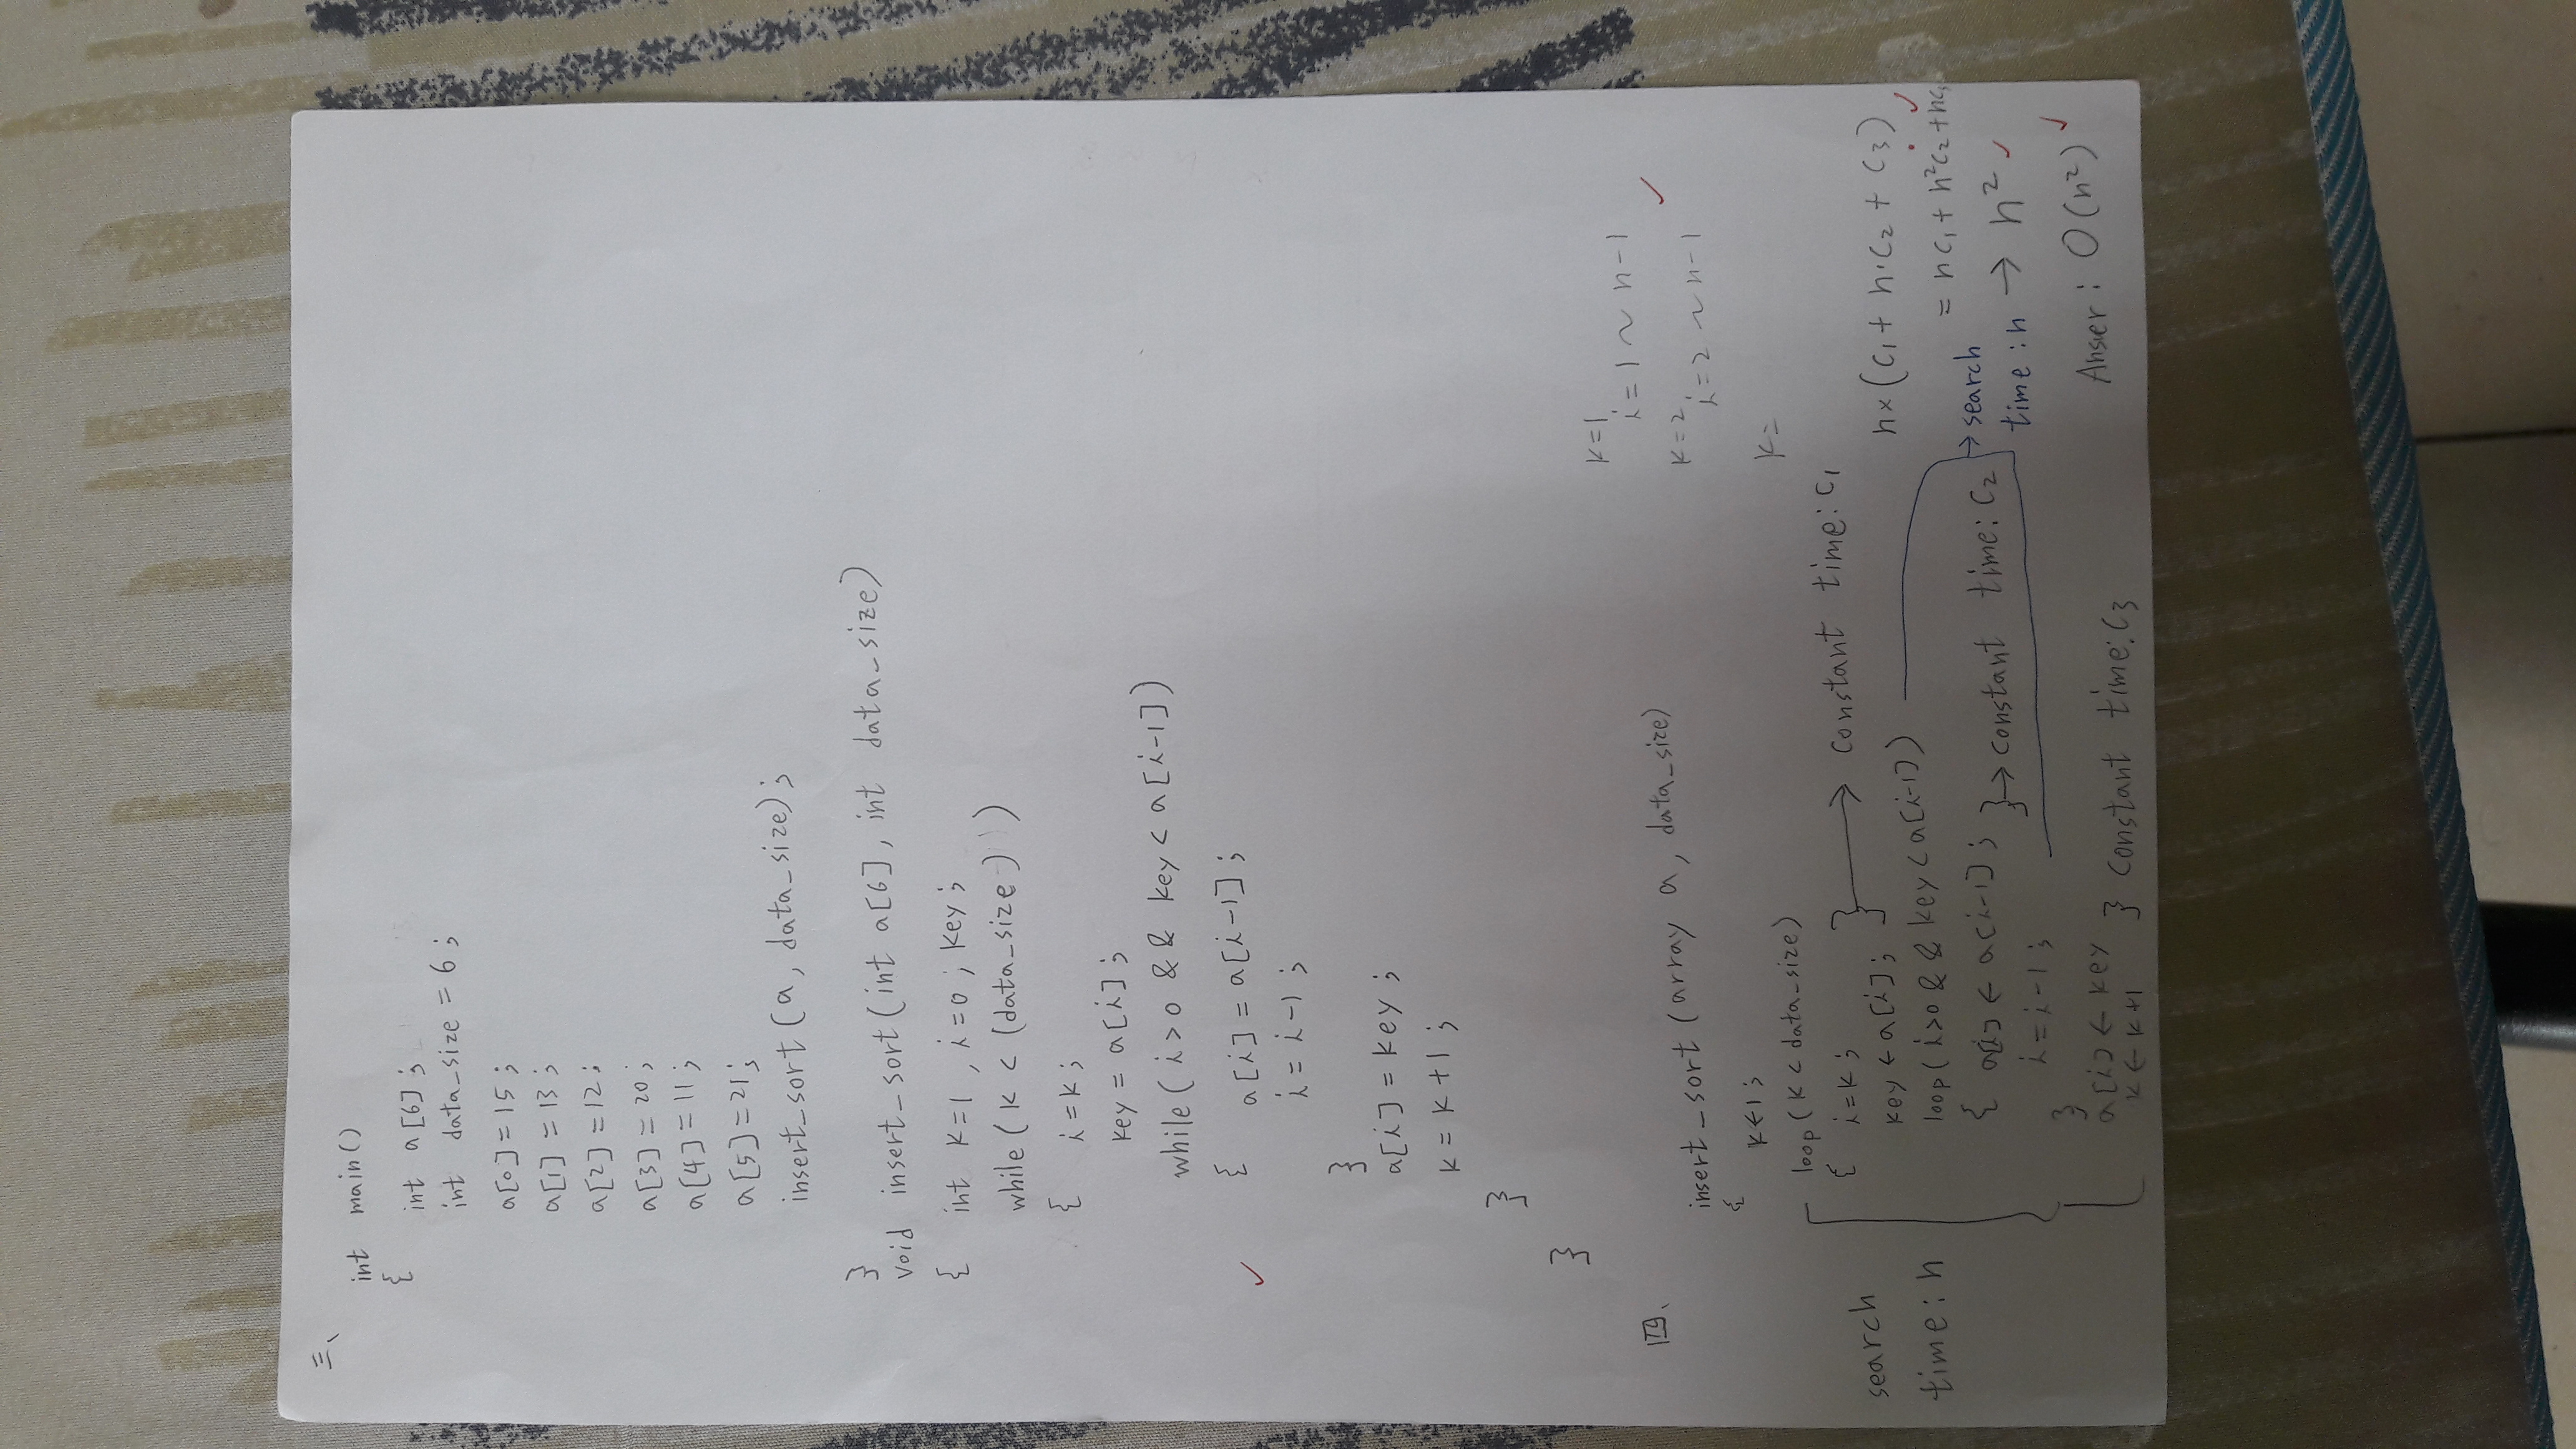 三、
int main()
{
int a[6];
int data_size = 6;
a[0]=15;
a[1]=13;
a[2]=12;
a[3]=20;
a[4]=11;
a[5]=21;
insert_sort(a, data_size);
}
void insert_sort(int a[6], int data_size)
{ int k=1, i=0; key;
while(k < (data_size))
{ i=k;
key = a[i];
while(i>0 && key<a[i-1])
{ a[i]=a[i-1];
i=i-1;
}
a[i]=key;
k=k+1;
}
}
四、
insert_sort(array a, data_size)
{
k←1;
loop(k<data_size)
{ i=k;
key←a[i];
} → constant time: C1
loop(i>0 && key<a[i-1])
{ a[i]←a[i-1];
i=i-1;
} → constant time: C2
}
a[i]←key
k←k+1
} constant time: C3
search
time: n
→ search
time: n → n²
k=1
i=1~n-1
k=2
i=2~n-1
k=
n×(C1+n·C2+C3)
=nC1+n²C2+nC3
Anser: O(n²)